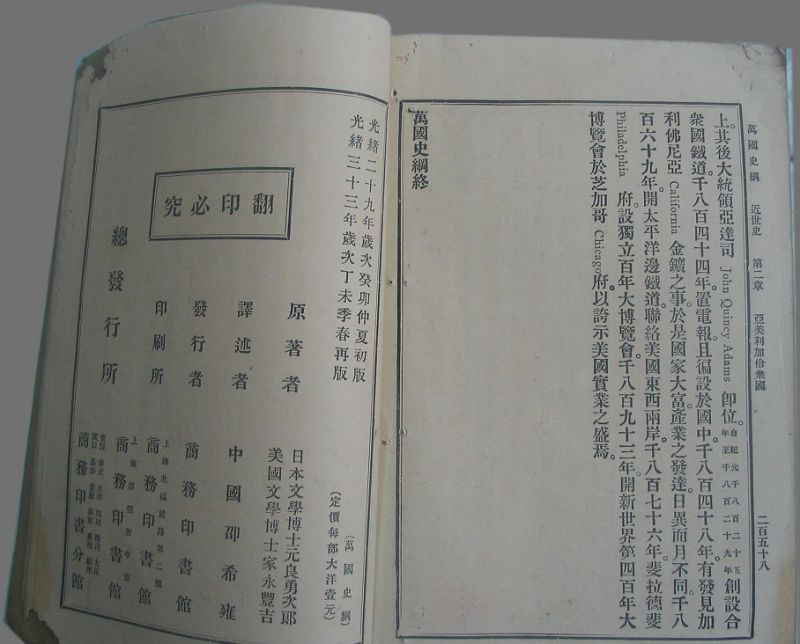 萬國史綱 近世史 第二章 亞美利加俗衆國 二百五十八
上。其後大統領亞達司 John Quincy Adams 卽位。自紀元千八百二十五年至千八百二十九年創設合
衆國鐵道。千八百四十四年。置電報。且徧設於國中。千八百四十八年。有發見加
利佛尼亞 California 金鑛之事。於是國家大富。產業之發達。日異而月不同。千八
百六十九年。開太平洋邊鐵道。聯絡美國東西兩岸。千八百七十六年。斐拉德斐
Philadelphia 府。設獨立百年大博覽會。千八百九十三年。開新世界第四百年大
博覽會於芝加哥 Chicago 府。以誇示美國實業之盛焉。
萬國史綱終
(萬國史綱)
(定價每部大洋壹元)
光緒二十九年歲次癸卯仲夏初版
光緒三十三年歲次丁未季春再版
翻印必究
原著者 日本文學博士元良勇次郎
美國文學博士家永豐吉
譯述者 中國邵希雍
發行者 商務印書館
印刷所 上海北福建路第二號 商務印書館
總發行所 上海棋盤街中市 商務印書館
商務印書分館